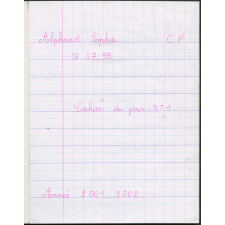 Alphand Sophie C.P
16.07.95
"Cahier" du jour N°1
Année 2001_2002.